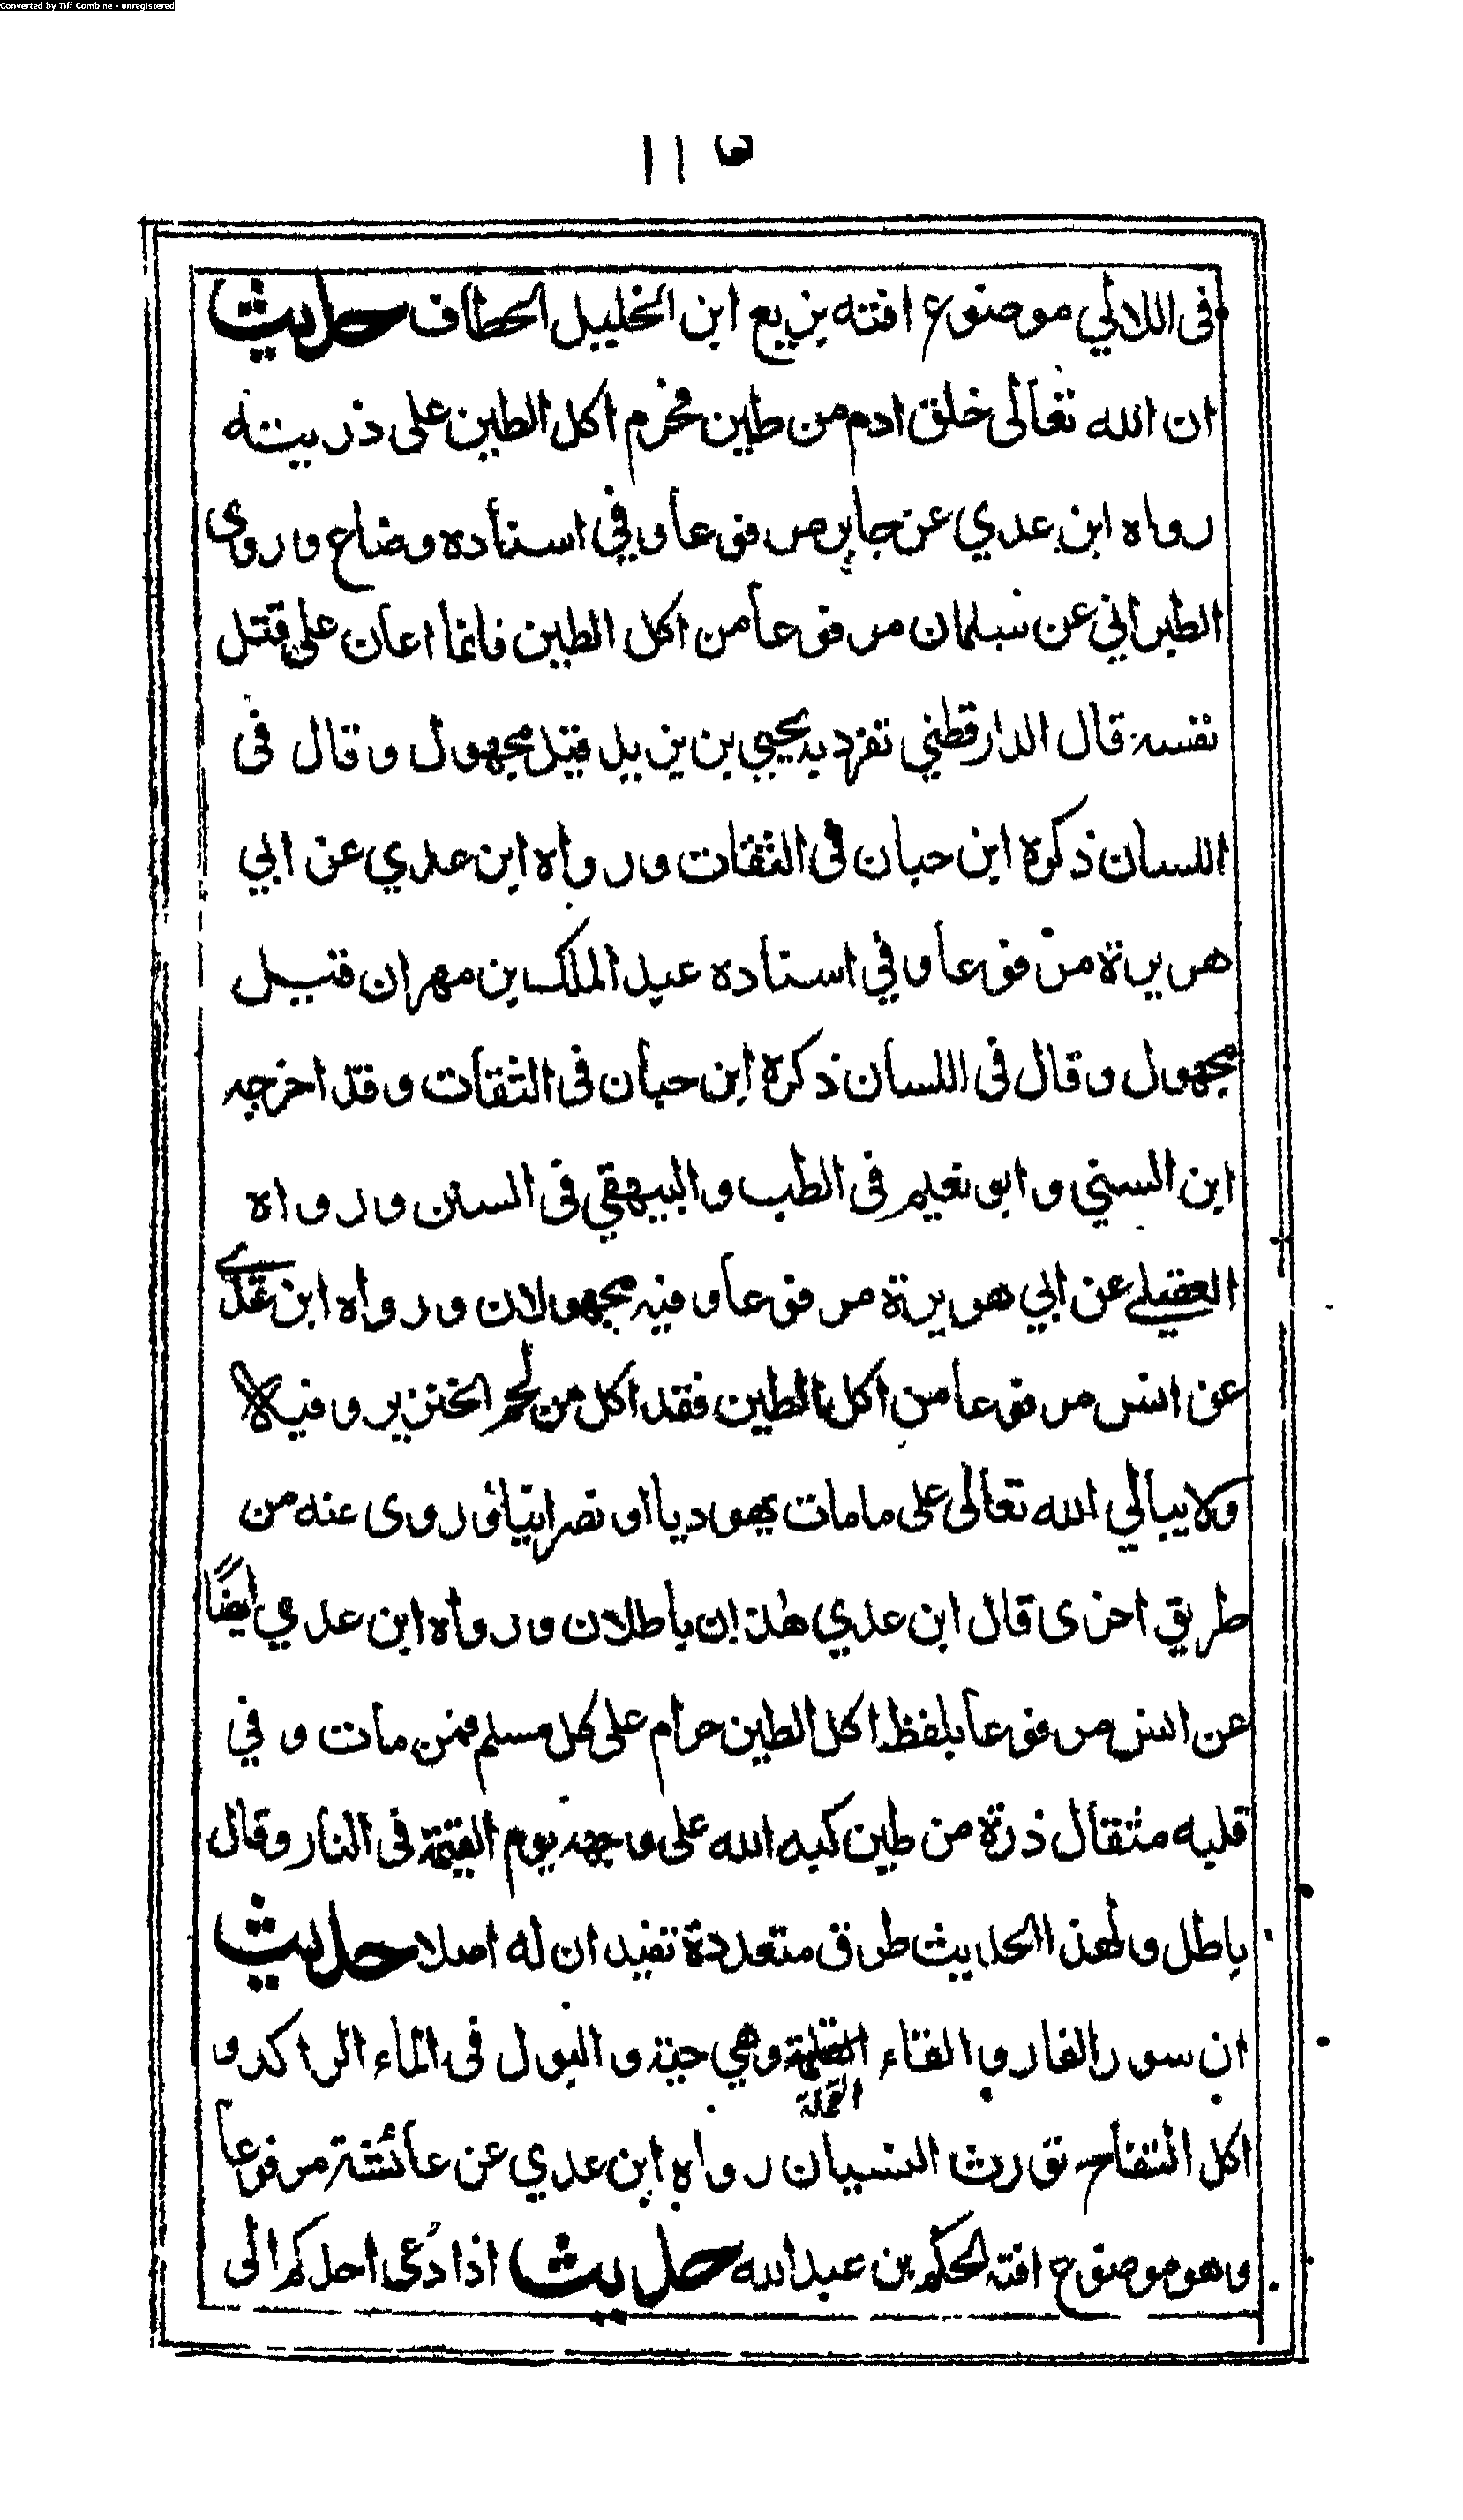 Converted by Tiff Combine - unregistered
١١٥
فى اللالي موضوع افته بزيع ابن الخليل الخطاف حديث
ان الله تعالى خلق ادم من طين فحرم اكل الطين على ذريته
رواه ابن عدي عن جابر مرفوعا وفي اسناده وضاع وروى
الطبراني عن سلمان مرفوعا من اكل الطين فانما اعان على قتل
نفسه قال الدارقطني تفرد به يحيي بن يزيد قيل مجهول وقال فى
اللسان ذكره ابن حبان فى الثقات ورواه ابن عدي عن ابي
هريرة مرفوعا وفي اسناده عبد الملك بن مهران قيل
مجهول وقال فى اللسان ذكره ابن حبان فى الثقات وقد اخرجه
ابن السني وابو نعيم فى الطب والبيهقي فى السنن ورواه
العقيلي عن ابي هريرة مرفوعا وفيه مجهولان ورواه ابن عدي
عن انس مرفوعا من اكل الطين فقد اكل من لحم الخنزير وفيه
ولا يبالي الله تعالى على مامات يهوديا او نصرانيا وروى عنه من
طريق اخرى قال ابن عدي هذان باطلان ورواه ابن عدي ايضًا
عن انس مرفوعا بلفظ اكل الطين حرام على كل مسلم فمن مات وفي
قلبه مثقال ذرة من طين كبه الله على وجهه يوم القيمة فى النار وقال
باطل ولهذا الحديث طرق متعددة تفيد ان له اصلا حديث
ان سور الفار والقاء القملة وهي حية والبول فى الماء الراكد و
القملة
اكل التفاح تورث النسيان رواه ابن عدي عن عائشة مرفوعا
وهو موضوع افته الحكم بن عبدالله حديث اذا دُعى احدكم الى